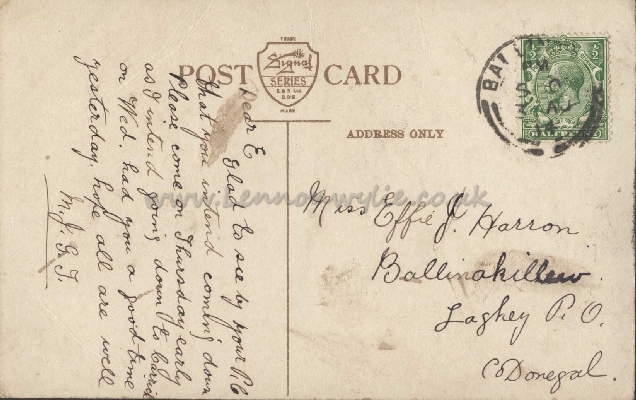 POST CARD
TRADE
Signal
SERIES
E & S Ltd
DUB
MARK
ADDRESS ONLY
½ ½
HALFPENNY
BAL
Dear E
Glad to see by your P.C
that you intend coming down
Please come on Thursday early
as I intend going down to Carrick
on Wed. had you a good time
yesterday, hope all are well
M. J. G. T.
Miss Effie J. Harron
Ballinakillew
Laghey P. O.
Co Donegal.
www.lennonwylie.co.uk